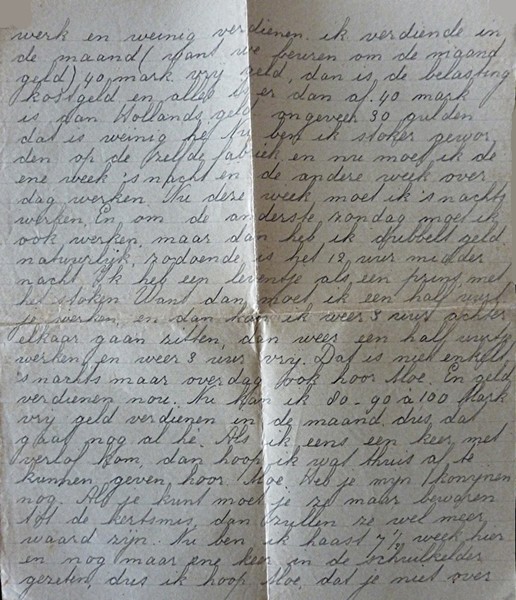 werk en weinig verdienen. ik verdiende in
de maand (want we beuren om de maand
geld) 40 mark vrij geld, dan is, de belasting
kostgeld en alles er dan af. 40 mark
is dan Hollands geld ongeveer 30 gulden
dat is weinig he. Nu ben ik stoker gewor
den op de zelfde fabriek en nu moet ik de
ene week 's nacht en de andere week over
dag werken. Nu deze week moet ik 's nachts
werken. En om de anderste zondag moet ik
ook werken, maar dan heb ik dubbelt geld
natuurlijk, zodoende is het 12 uur midder
nacht. Ik heb een leventje als een prins met
het stoken Want dan moet ik een half uurt
je werken, en dan kan ik weer 3 uur achter
elkaar gaan zitten, dan weer een half uurtje
werken en weer 3 uur vrij. Dat is niet enkelt
's nachts maar overdag ook hoor Moe. En geld
verdienen nou. Nu kan ik 80-90 à 100 Mark
vrij geld verdienen in de maand, dus dat
gaat nog al he. Als ik eens een keer met
verlof kom, dan hoop ik wat thuis af te
kunnen geven hoor Moe. Heb je mijn konijnen
nog. Als je kunt moet je ze maar bewaren
tot de kerstmis, dan zullen ze wel meer
waard zijn. Nu ben ik haast 7½ week hier
en nog maar ene keer in de schuilkelder
gezeten, dus ik hoop Moe, dat je niet over